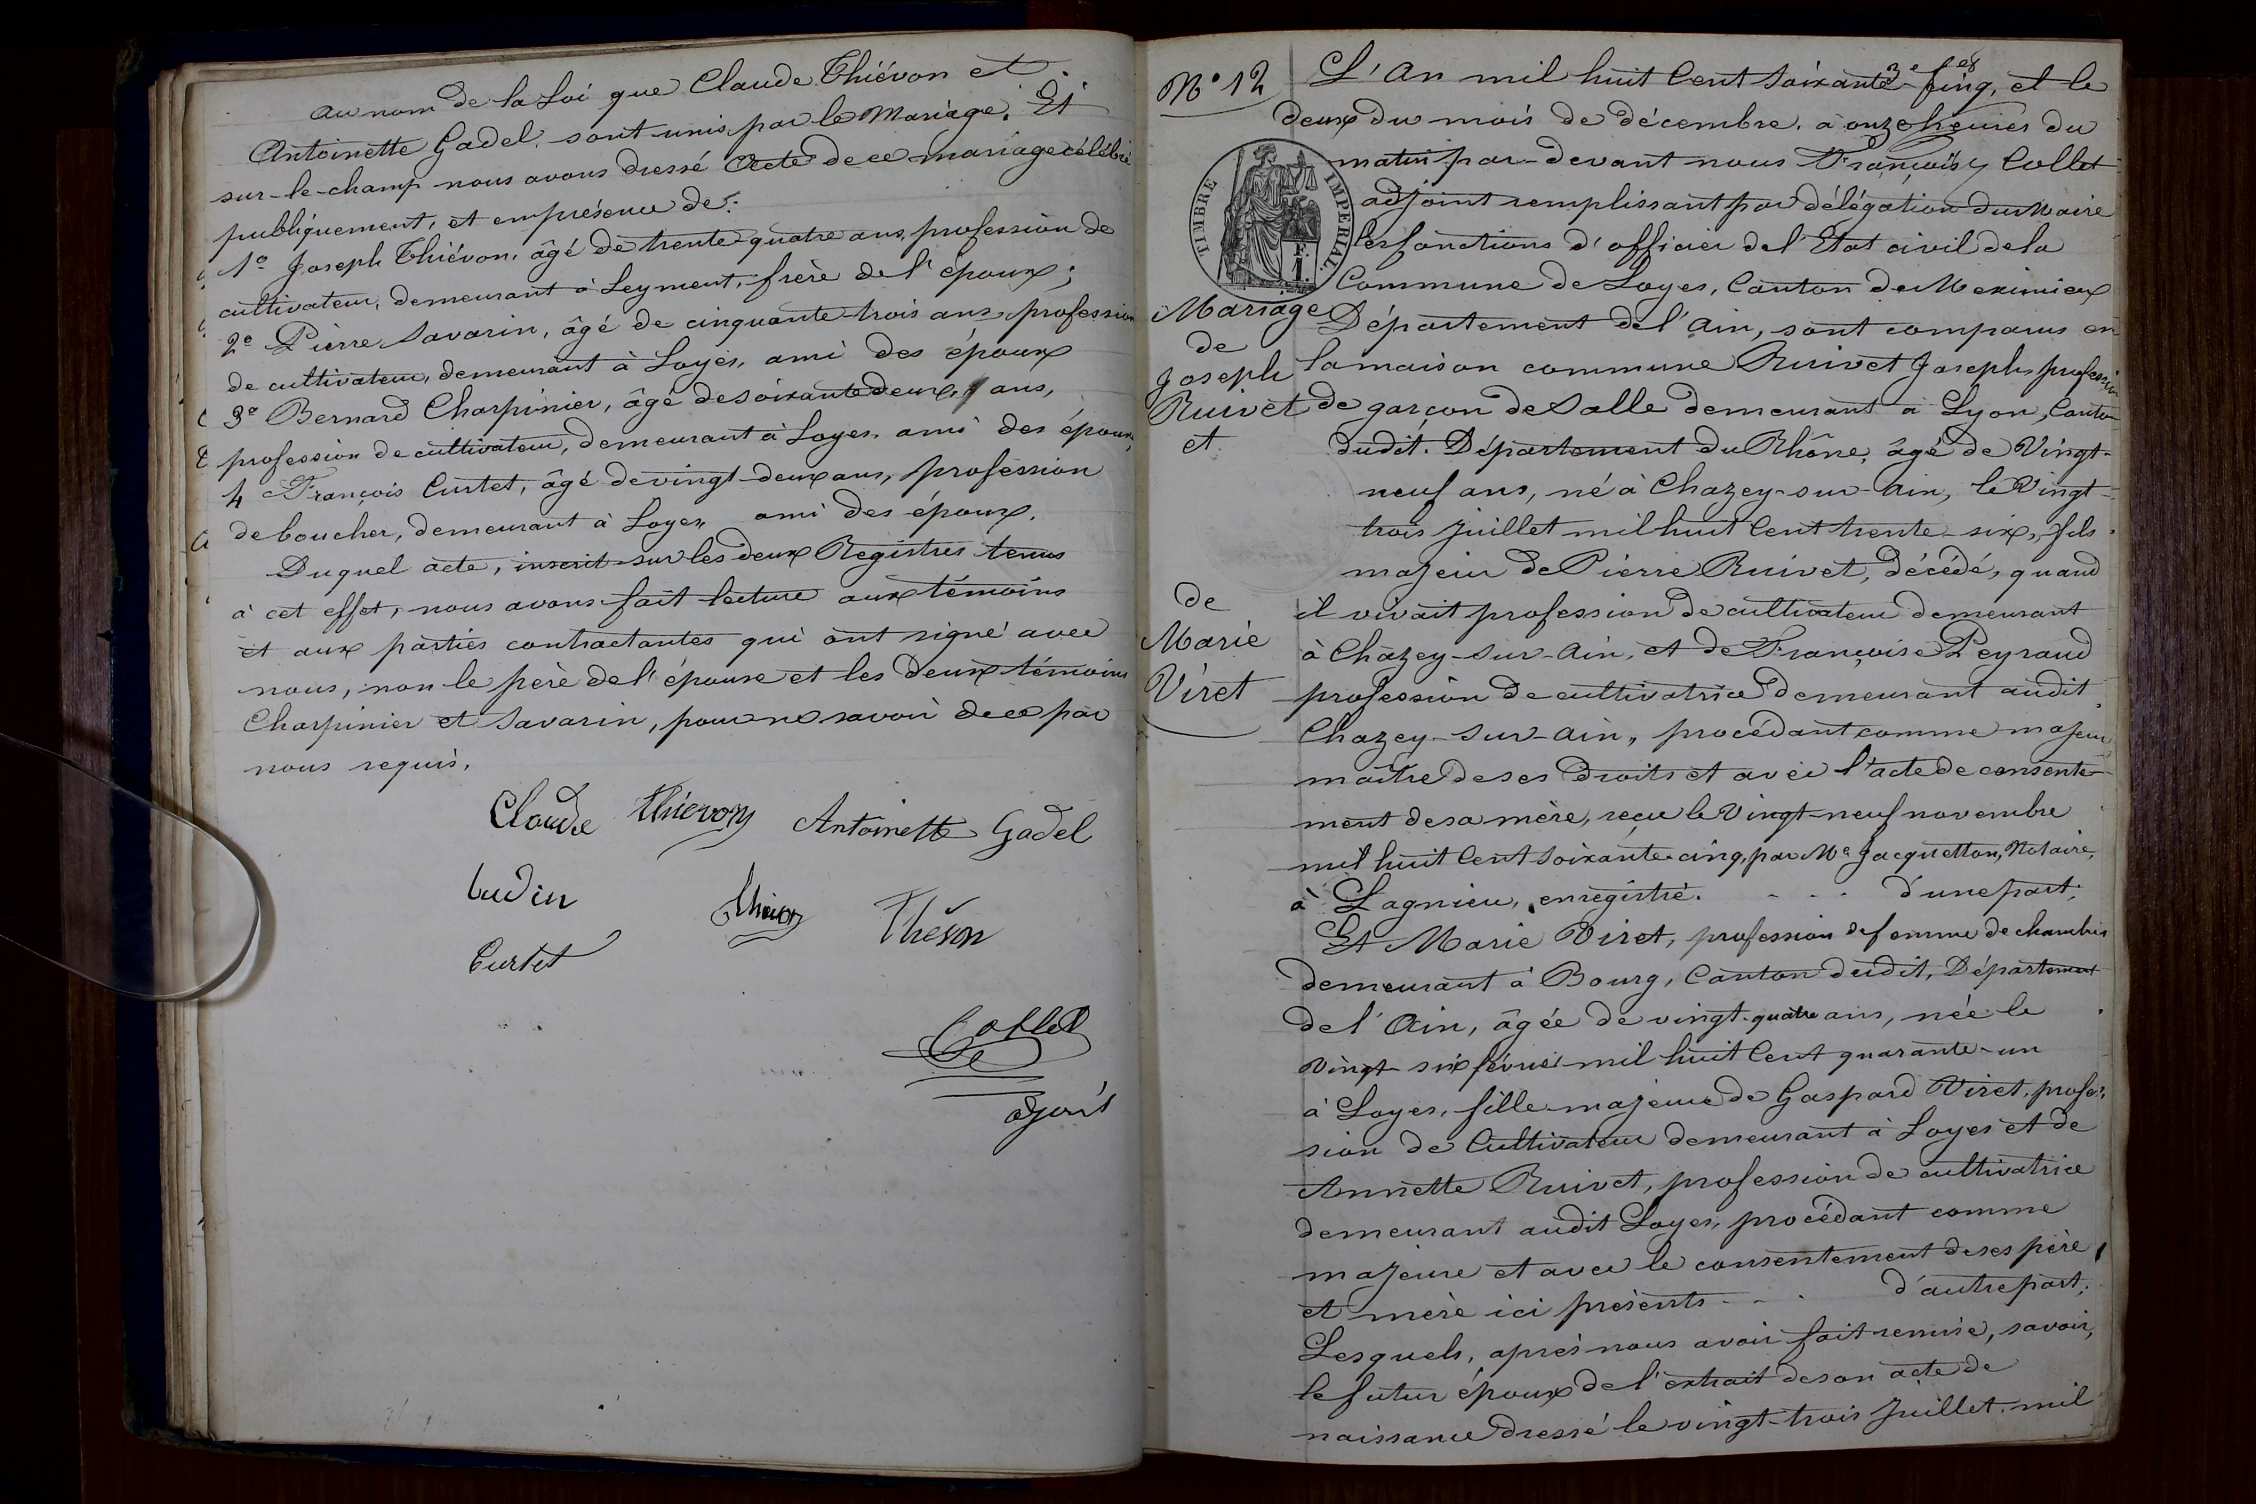 au nom de la Loi que Claude Thiévon et
Antoinette Gadel, sont unis par le Mariage. Et
sur-le-champ nous avons dressé Acte de ce mariage célébré
publiquement, et en présence de:
1º Joseph Thiévon, âgé de trente-quatre ans, profession de
cultivateur, demeurant à Leyment, frère de l'époux;
2º Pierre Savarin, âgé de cinquante-trois ans, profession
de cultivateur, demeurant à Loyes, ami des époux
3º Bernard Charpinier, âgé de soixante deux ans,
profession de cultivateur, demeurant à Loyes, ami des époux,
4 François Curtet, âgé de vingt-deux ans, profession
de boucher, demeurant à Loyes, ami des époux.
Duquel acte, inscrit sur les deux Registres tenus
à cet effet, nous avons fait lecture aux témoins
et aux parties contractantes qui ont signé avec
nous, non le père de l'épouse et les deux témoins
Charpinier et Savarin, pour ne savoir de ce par
nous requis.
Claude Thievon Antoinette Gadel
budin Thievon Thévon
Curtet
Collet
adjoint
Nº 12
TIMBRE IMPERIAL
1 F.
Mariage
de
Joseph
Ruivet
et
de
Marie
Viret
L'An mil huit Cent soixante-cinq, et le
deux du mois de décembre, à onze heures du
matin par-devant nous François Collet
adjoint remplissant par délégation du Maire
les fonctions d'officier de l'Etat civil de la
Commune de Loyes, Canton de Meximieux
Département de l'Ain, sont comparus en
la maison commune Ruivet Joseph, profession
de garçon de Salle demeurant à Lyon, Canton
dudit. Département du Rhône, âgé de Vingt-
neuf ans, né à Chazey-sur-Ain, le Vingt-
trois Juillet mil huit Cent trente-six, fils
majeur de Pierre Ruivet, décédé, quand
il vivait profession de cultivateur demeurant
à Chazey-sur-Ain, et de Françoise Peyraud
profession de cultivatrice demeurant audit
Chazey-sur-Ain, procédant comme majeur
maître de ses droits et avec l'acte de consente-
ment de sa mère, reçu le Vingt-neuf novembre
mil huit Cent soixante-cinq, par Me Jacquetton, Notaire,
à Lagnieu, enregistré. - - - d'une part;
Et Marie Viret, profession de femme de chambre
demeurant à Bourg, Canton dudit, Département
de l'Ain, âgée de vingt-quatre ans, née le
Vingt-six février mil huit Cent quarante-un
à Loyes, fille majeure de Gaspard Viret, profes-
sion de Cultivateur demeurant à Loyes et de
Annette Ruivet, profession de cultivatrice
demeurant audit Loyes, procédant comme
majeure et avec le consentement de ses père
et mère ici présents - - . d'autre part;
Lesquels, après nous avoir fait remise, savoir,
le futur époux de l'extrait de son acte de
naissance dressé le vingt-trois Juillet mil